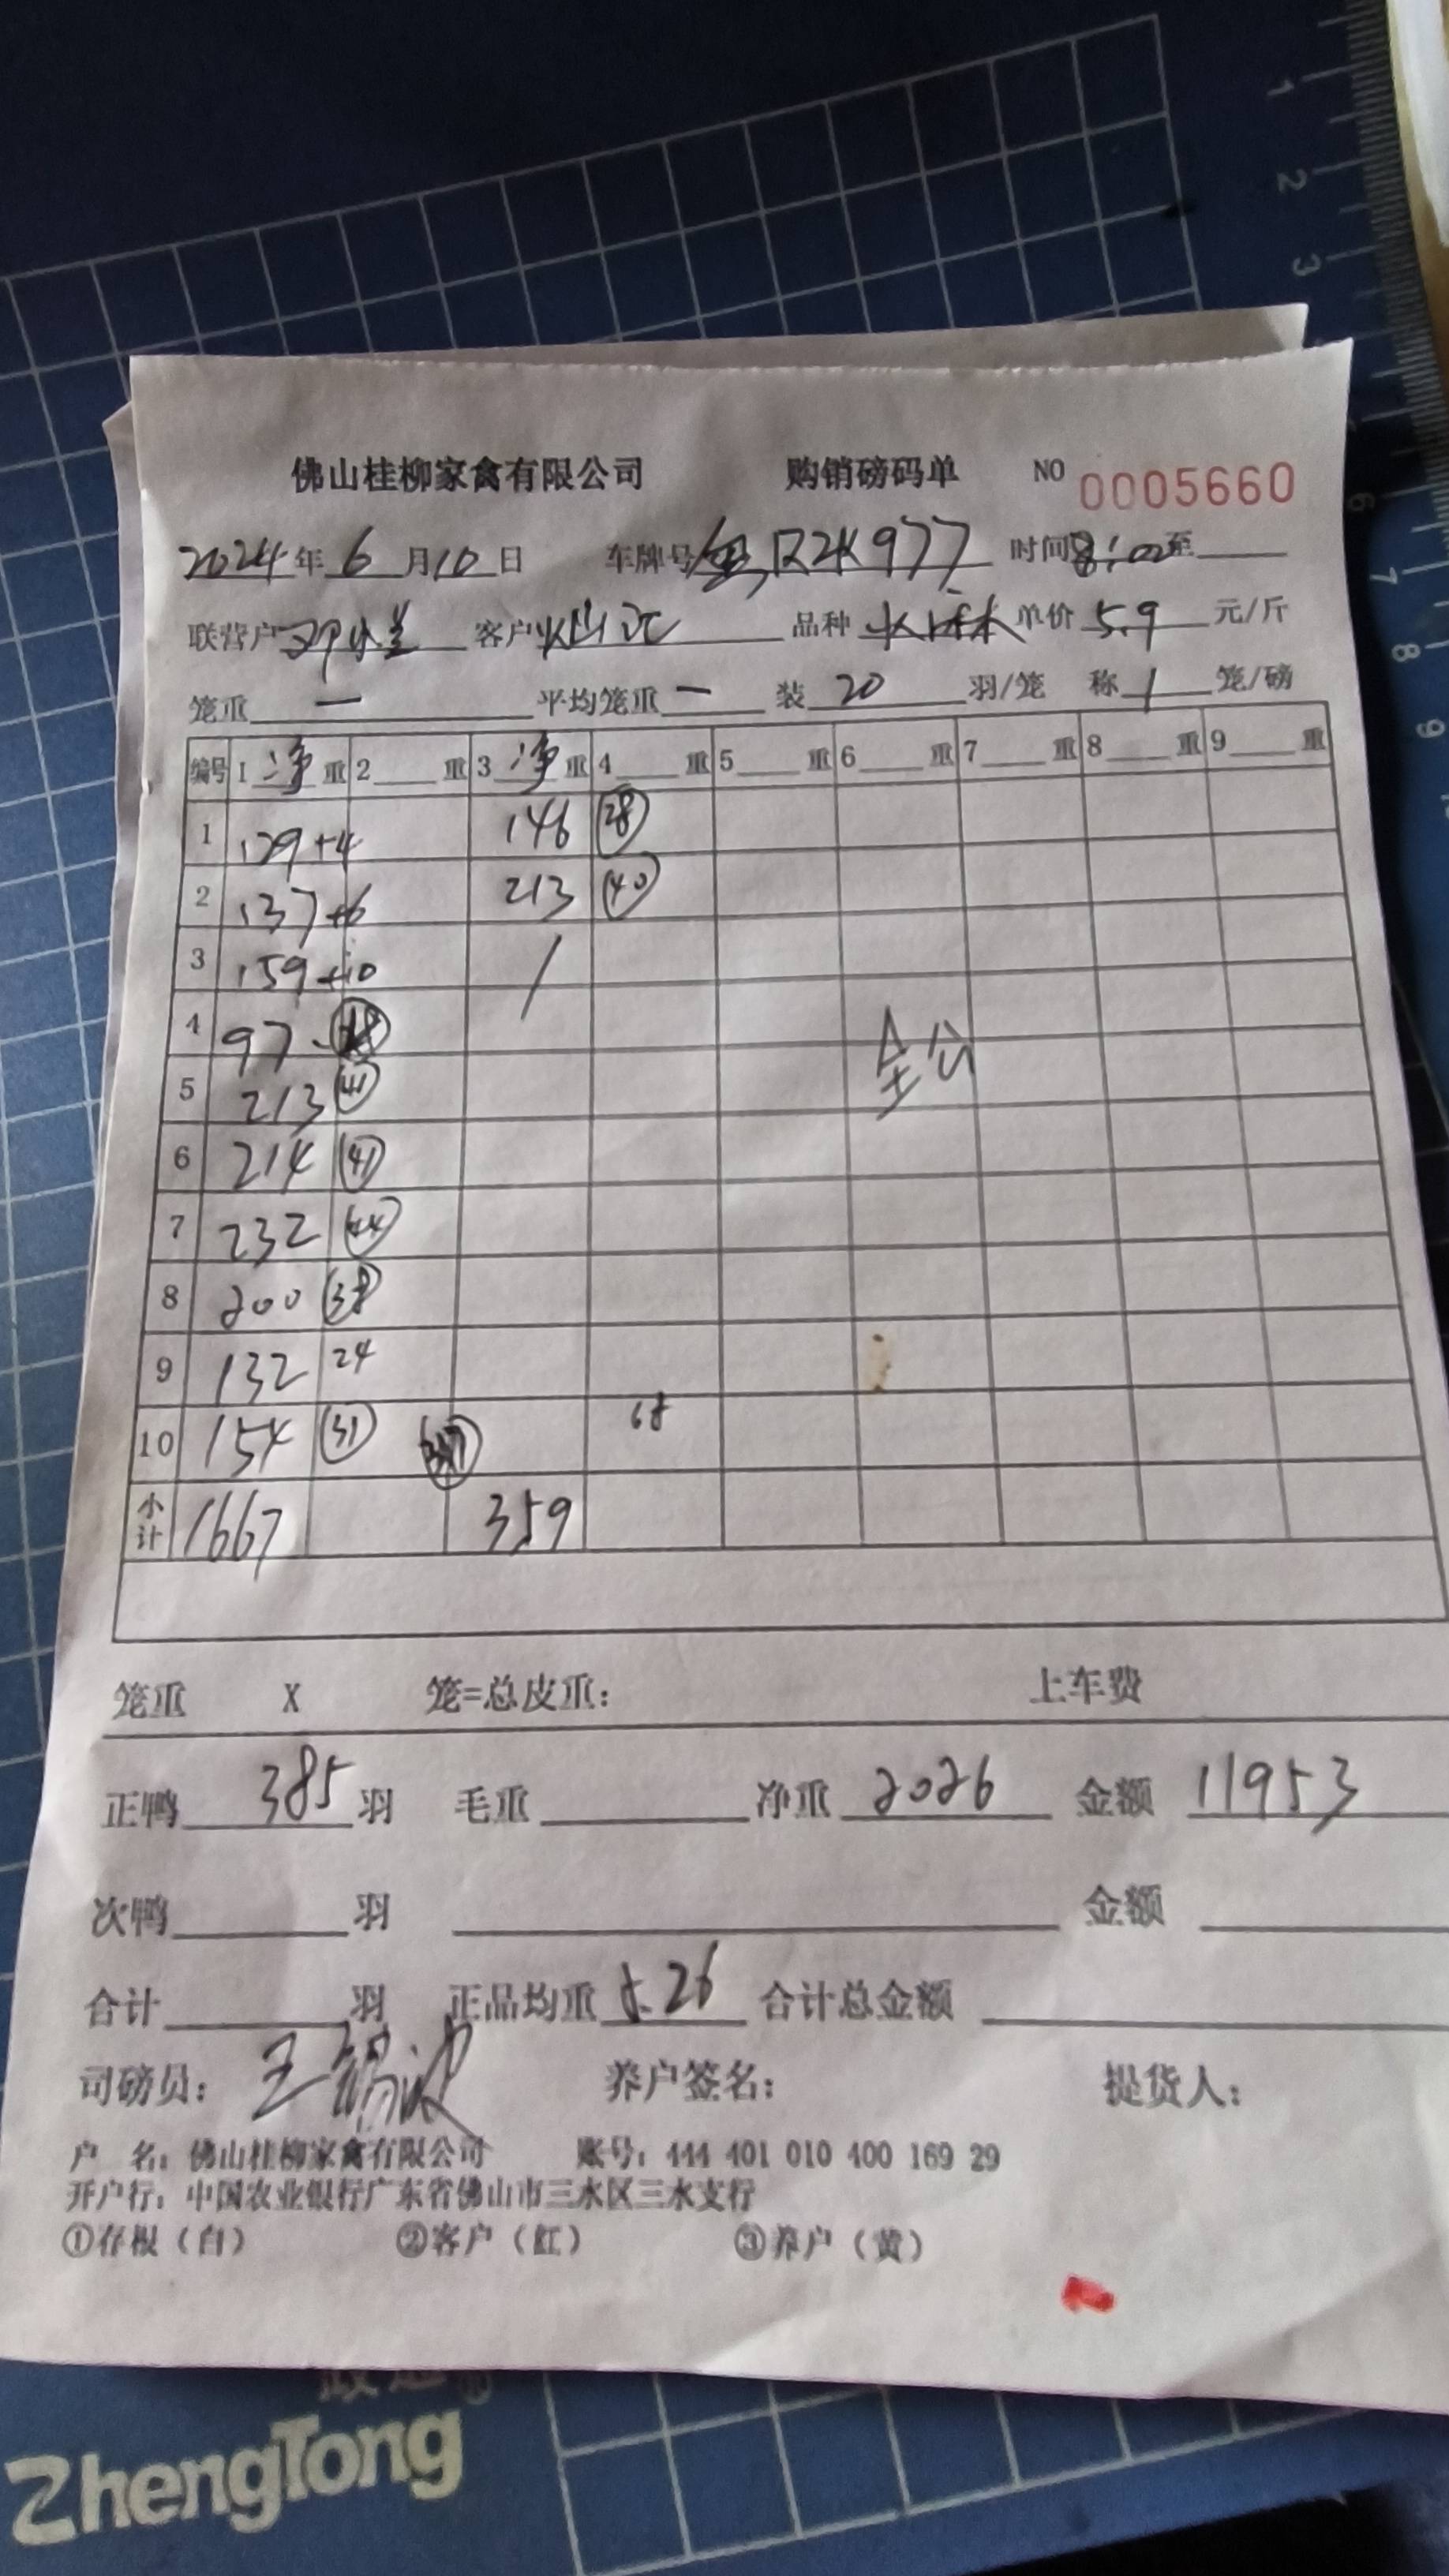 佛山桂柳家禽有限公司 购销磅码单 NO 0005660
2024年 6 月 10 日 车牌号 R2K977 时间 8:00 至
联营户 客户 品种 单价 5.9 元/斤
笼重 一 平均笼重 一 装 20 羽/笼 称 1 笼/磅
编号 1 净 重 2 重 3 净 重 4 重 5 重 6 重 7 重 8 重 9 重
1 129+4 146 28
2 137+6 213 40
3 159+10 /
4 97
5 213 41
6 214 41 全公
7 232 44
8 200 38
9 132 24
10 154 31 68
小计 1667 359
笼重 X 笼=总皮重: 上车费
正鸭 385 羽 毛重 净重 2026 金额 11953
次鸭 羽 金额
合计 羽 正品均重 5.26 合计总金额
司磅员: 养户签名: 提货人:
户 名: 佛山桂柳家禽有限公司 账号: 444 401 010 400 169 29
开户行: 中国农业银行广东省佛山市三水区三水支行
①存根（白） ②客户（红） ③养户（黄）
ZhengTong